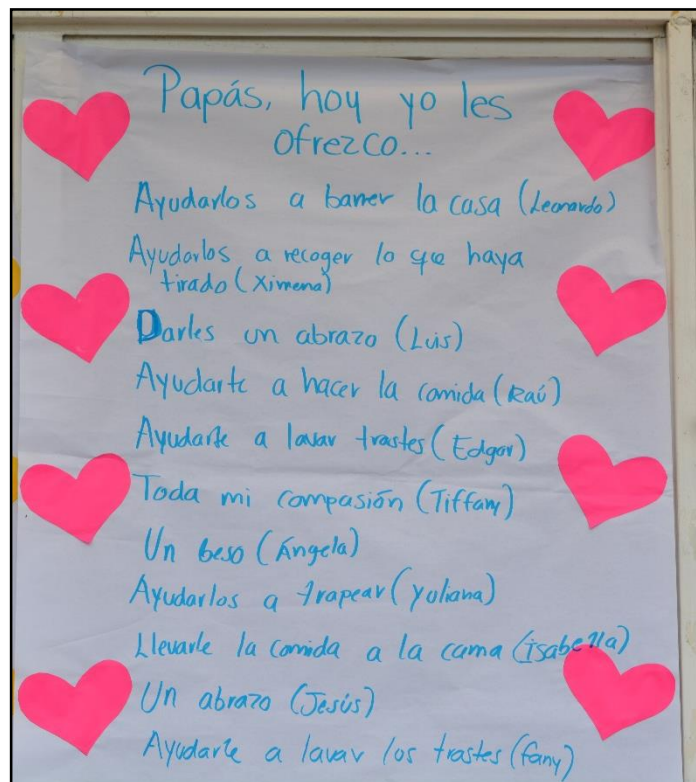 Papás, hoy yo les
ofrezco...
Ayudarlos a barrer la casa (Leonardo)
Ayudarlos a recoger lo que haya
tirado (Ximena)
Darles un abrazo (Luis)
Ayudarte a hacer la comida (Raú)
Ayudarte a lavar trastes (Edgar)
Toda mi compasión (Tiffany)
Un beso (Ángela)
Ayudarlos a trapear (Yuliana)
Llevarle la comida a la cama (Isabella)
Un abrazo (Jesús)
Ayudarte a lavar los trastes (fany)